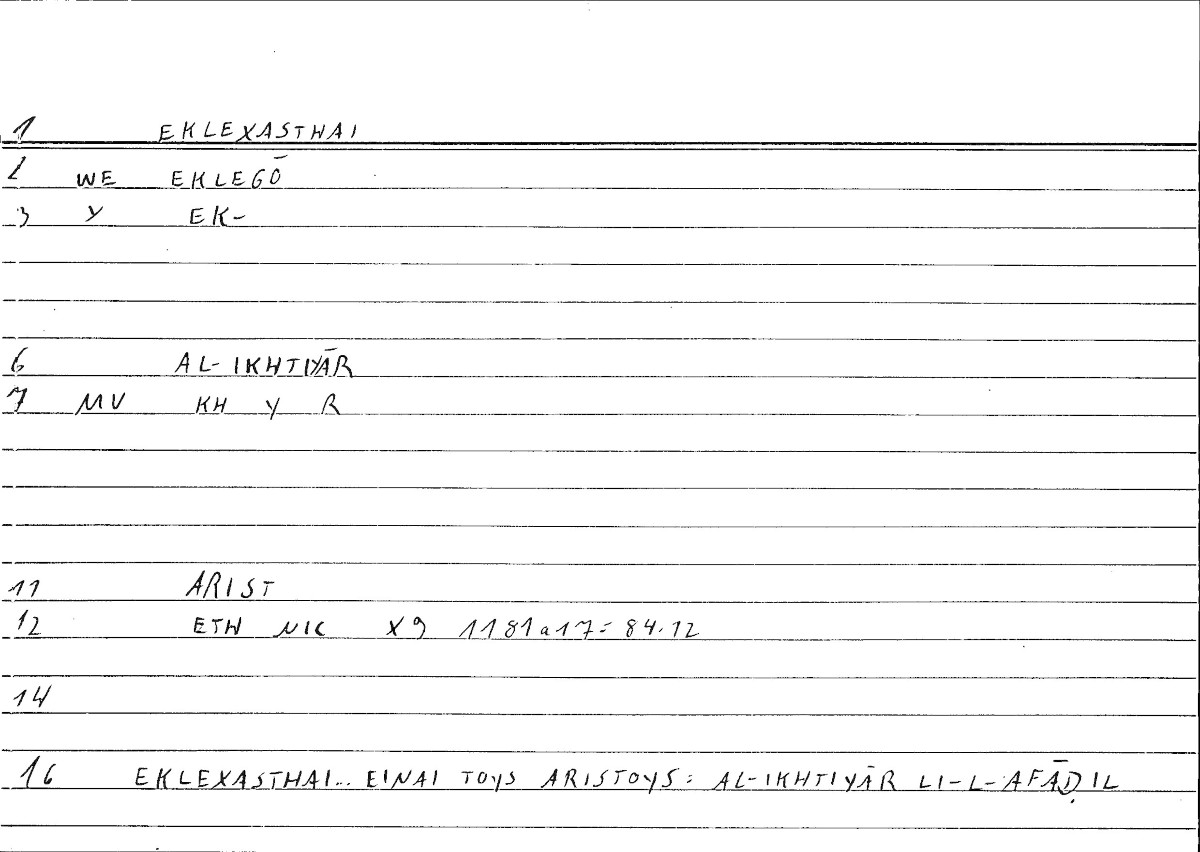 1 EKLEXASTHAI
2 WE EKLEGŌ
3 Y EK-
6 AL-IKHTIYĀR
7 MV KH Y R
11 ARIST
12 ETH NIC X9 1181a17= 84.12
14
16 EKLEXASTHAI... EINAI TOYS ARISTOYS: AL-IKHTIYĀR LI-L-AFĀḌIL